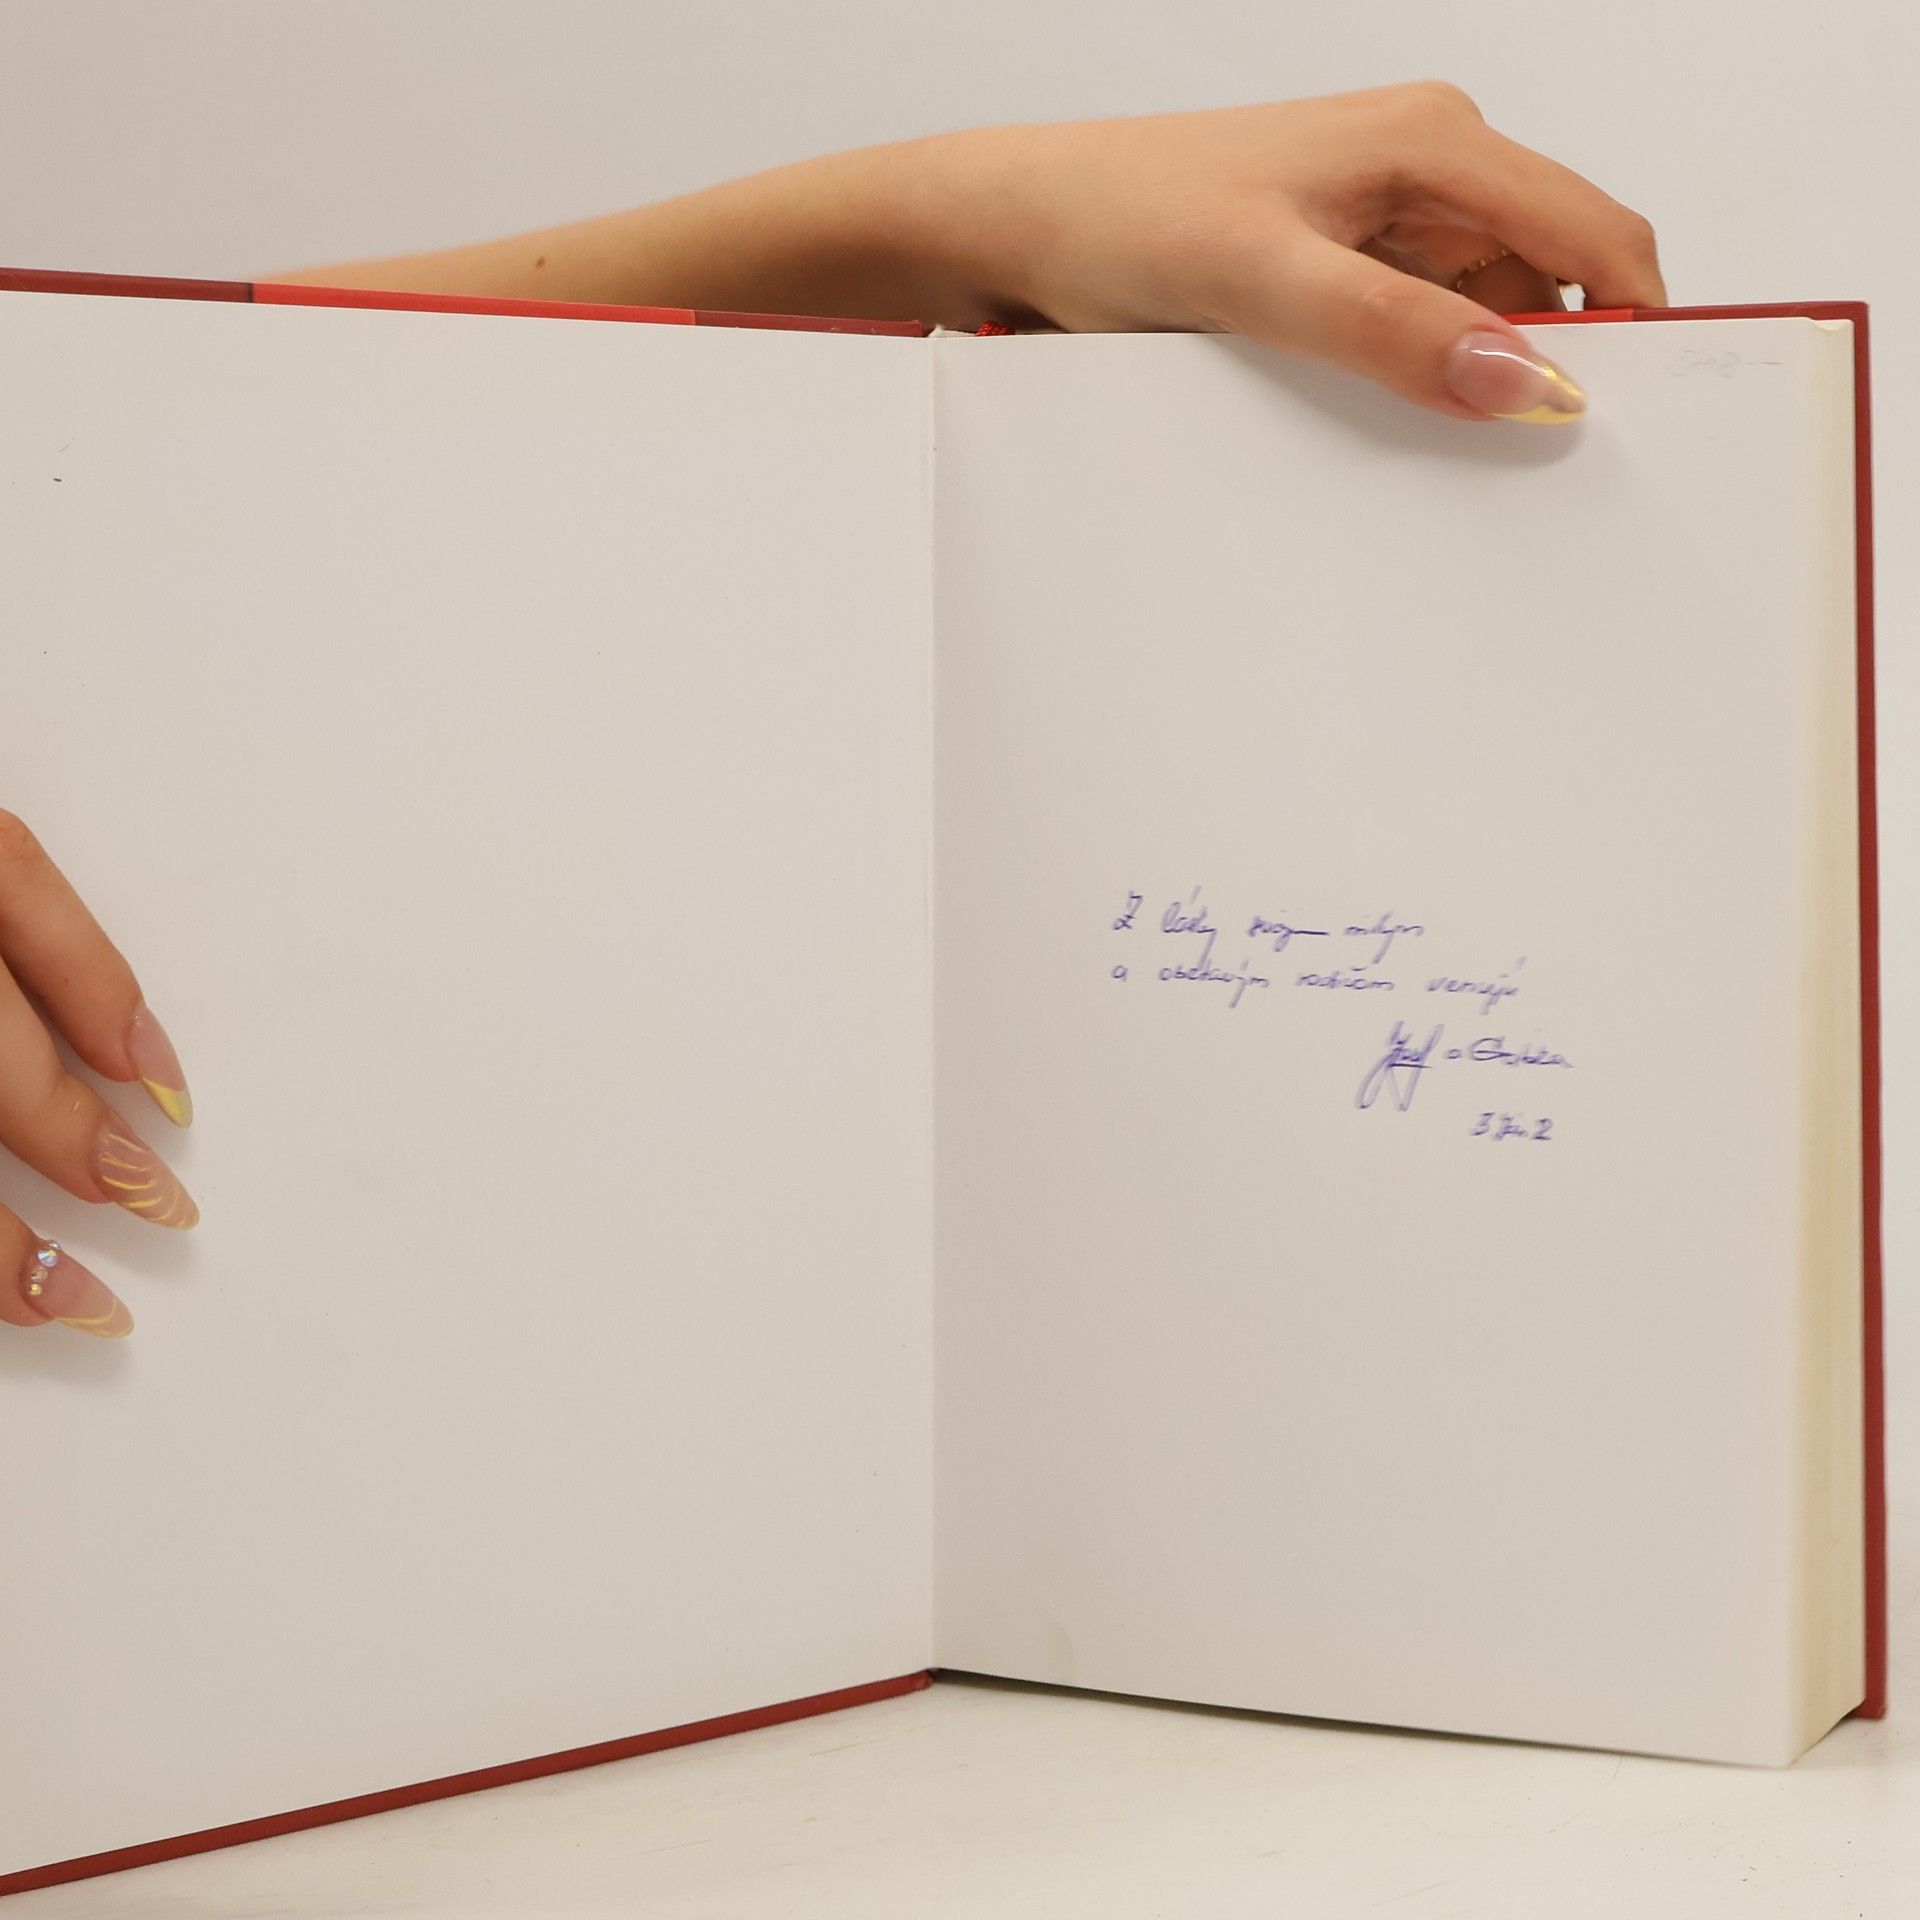 Z lásky svojim milým
a obetavým rodičom venujú
Jozef a Gabika